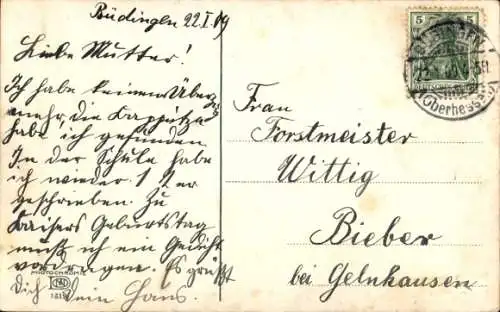 Büdingen 22.I.09
Liebe Mutter!
Ich habe keinen Überz.
mehr, die Kapputze
habe ich gefunden
In der Schule habe
ich wieder 1 2er
geschrieben. Zu
Kaisers Geburtstag
muß ich ein Gedicht
vortragen. Es grüßt
Dich Dein Hans.
PHOTOCHROMIE
5 5
BÜDINGEN
(Oberhessen)
Frau
Forstmeister
Wittig
Bieber
bei Gelnhausen